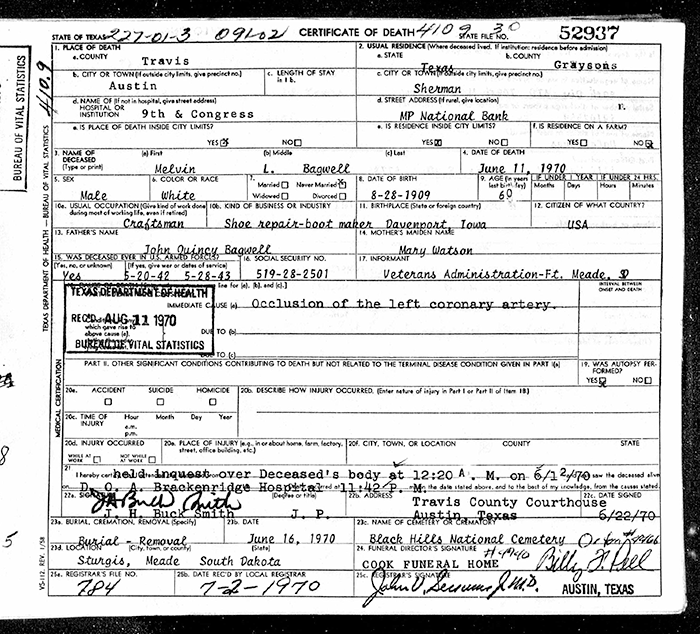 BUREAU OF VITAL STATISTICS
TEXAS DEPARTMENT OF HEALTH — BUREAU OF VITAL STATISTICS
410.9
STATE OF TEXAS 227-01-3 09L02 CERTIFICATE OF DEATH 4109 30 STATE FILE NO. 52937
1. PLACE OF DEATH
a. COUNTY Travis
2. USUAL RESIDENCE (Where deceased lived. If institution: residence before admission)
a. STATE Texas b. COUNTY Graysons
b. CITY OR TOWN (If outside city limits, give precinct no.) Austin
c. LENGTH OF STAY in 1 b.
c. CITY OR TOWN (If outside city limits, give precinct no.) Sherman
d. NAME OF (If not in hospital, give street address) HOSPITAL OR INSTITUTION 9th & Congress
d. STREET ADDRESS (If rural, give location) MP National Bank r.
e. IS PLACE OF DEATH INSIDE CITY LIMITS? YES X NO
e. IS RESIDENCE INSIDE CITY LIMITS? YES X NO
f. IS RESIDENCE ON A FARM? YES NO X
3. NAME OF DECEASED (Type or print) (a) First Melvin (b) Middle L. (c) Last Bagwell
4. DATE OF DEATH June 11, 1970
5. SEX Male
6. COLOR OR RACE White
7. Married Never Married X Widowed Divorced
8. DATE OF BIRTH 8-28-1909
9. AGE (In years last birthday) 60
IF UNDER 1 YEAR Months Days
IF UNDER 24 HRS. Hours Minutes
10a. USUAL OCCUPATION (Give kind of work done during most of working life, even if retired) Craftsman
10b. KIND OF BUSINESS OR INDUSTRY Shoe repair-boot maker
11. BIRTHPLACE (State or foreign country) Davenport, Iowa
12. CITIZEN OF WHAT COUNTRY? USA
13. FATHER'S NAME John Quincy Bagwell
14. MOTHER'S MAIDEN NAME Mary Watson
15. WAS DECEASED EVER IN U.S. ARMED FORCES? (Yes, no, or unknown) Yes (If yes, give war or dates of service) 5-20-42 5-28-43
16. SOCIAL SECURITY NO. 519-28-2501
17. INFORMANT Veterans Administration-Ft. Meade, SD
line for (a), (b), and (c).
INTERVAL BETWEEN ONSET AND DEATH
TEXAS DEPARTMENT OF HEALTH
REC'D. AUG 11 1970
BUREAU OF VITAL STATISTICS
IMMEDIATE CAUSE (a) Occlusion of the left coronary artery.
which gave rise to above cause (a),
DUE TO (b)
DUE TO (c)
MEDICAL CERTIFICATION
PART II. OTHER SIGNIFICANT CONDITIONS CONTRIBUTING TO DEATH BUT NOT RELATED TO THE TERMINAL DISEASE CONDITION GIVEN IN PART I(a)
19. WAS AUTOPSY PERFORMED? YES X NO
20a. ACCIDENT SUICIDE HOMICIDE
20b. DESCRIBE HOW INJURY OCCURRED. (Enter nature of injury in Part I or Part II of item 18)
20c. TIME OF INJURY Hour a.m. p.m. Month Day Year
20d. INJURY OCCURRED WHILE AT WORK NOT WHILE AT WORK
20e. PLACE OF INJURY (e.g., in or about home, farm, factory, street, office building, etc.)
20f. CITY, TOWN, OR LOCATION COUNTY STATE
21. I hereby certify held inquest over Deceased's body at 12:20 A. M. on 6/12/70 saw the deceased alive
D. O. A. Brackenridge Hospital 11:42 P. M. on the date stated above, and to the best of my knowledge, from the causes stated.
22a. SIGNATURE J H Buck Smith (Degree or title)
J. H. Buck Smith J. P.
22b. ADDRESS Travis County Courthouse
Austin, Texas
22c. DATE SIGNED 6/22/70
23a. BURIAL, CREMATION, REMOVAL (Specify) Burial - Removal
23b. DATE June 16, 1970
23c. NAME OF CEMETERY OR CREMATORY Black Hills National Cemetery
23d. LOCATION (City, town, or county) (State) Sturgis, Meade South Dakota
24. FUNERAL DIRECTOR'S SIGNATURE #4940
COOK FUNERAL HOME Billy F. Bell
25a. REGISTRAR'S FILE NO. 784
25b. DATE REC'D BY LOCAL REGISTRAR 7-2-1970
25c. REGISTRAR'S SIGNATURE John V. Sessums Jr. M.D. AUSTIN, TEXAS
VS-112, REV. 1/58